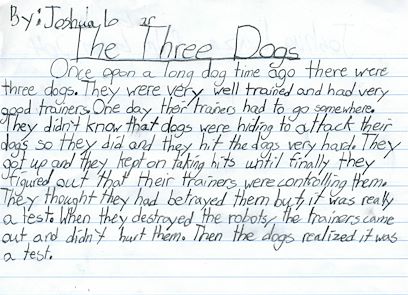 By: Joshua
The Three Dogs
Once opon a long dog time ago there were
three dogs. They were very well trained and had very
good trainers. One day their trainers had to go somewhere.
They didn't know that dogs were hiding to attack their
dogs so they did and they hit the dogs very hard. They
got up and they kept on taking hits until finally they
figured out that their trainers were controlling them.
They thought they had betrayed them but it was really
a test. When they destroyed the robots the trainers came
out and didn't hurt them. Then the dogs realized it was
a test.